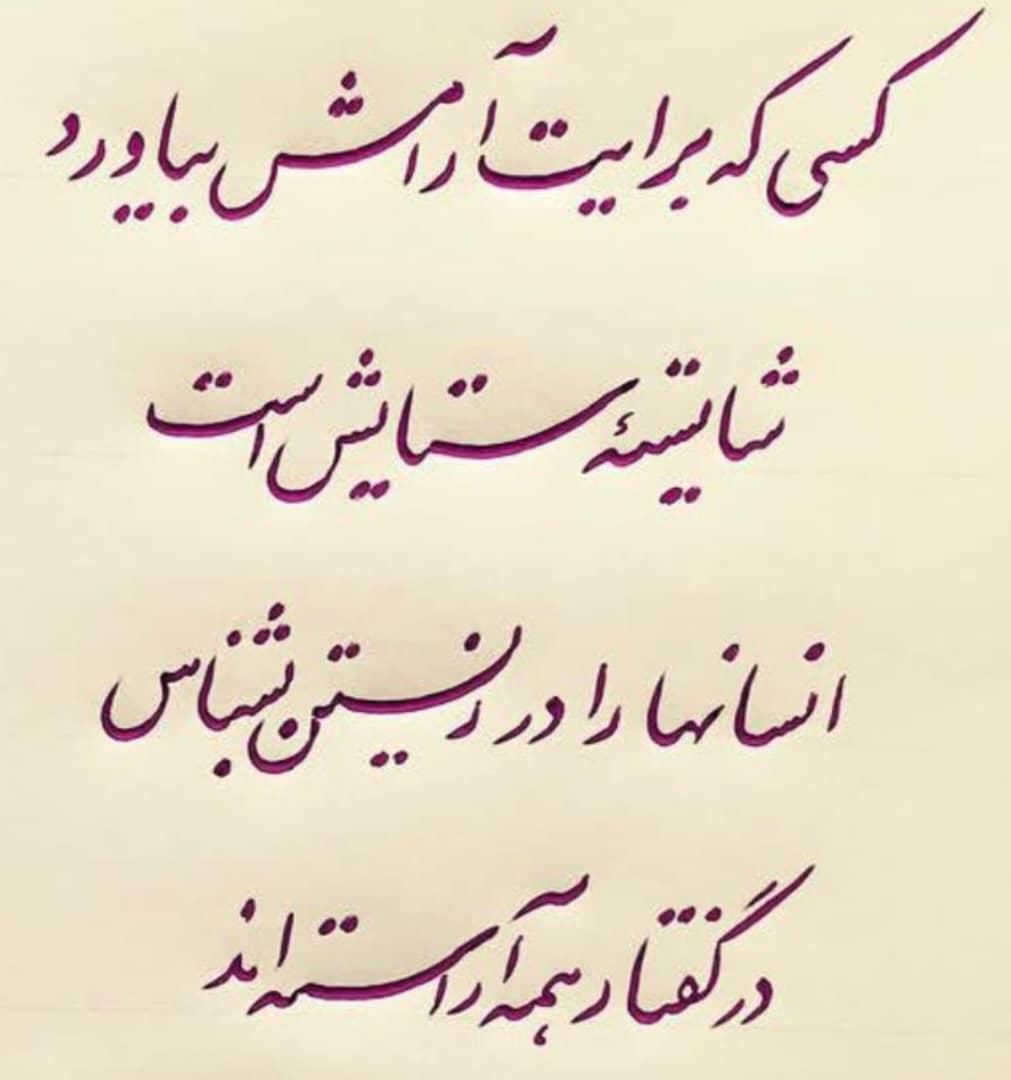 کسی که برایت آرامش بیاورد
شایستهٔ ستایش است
انسانها را در زیستن بشناس
در گفتار همه آراسته اند